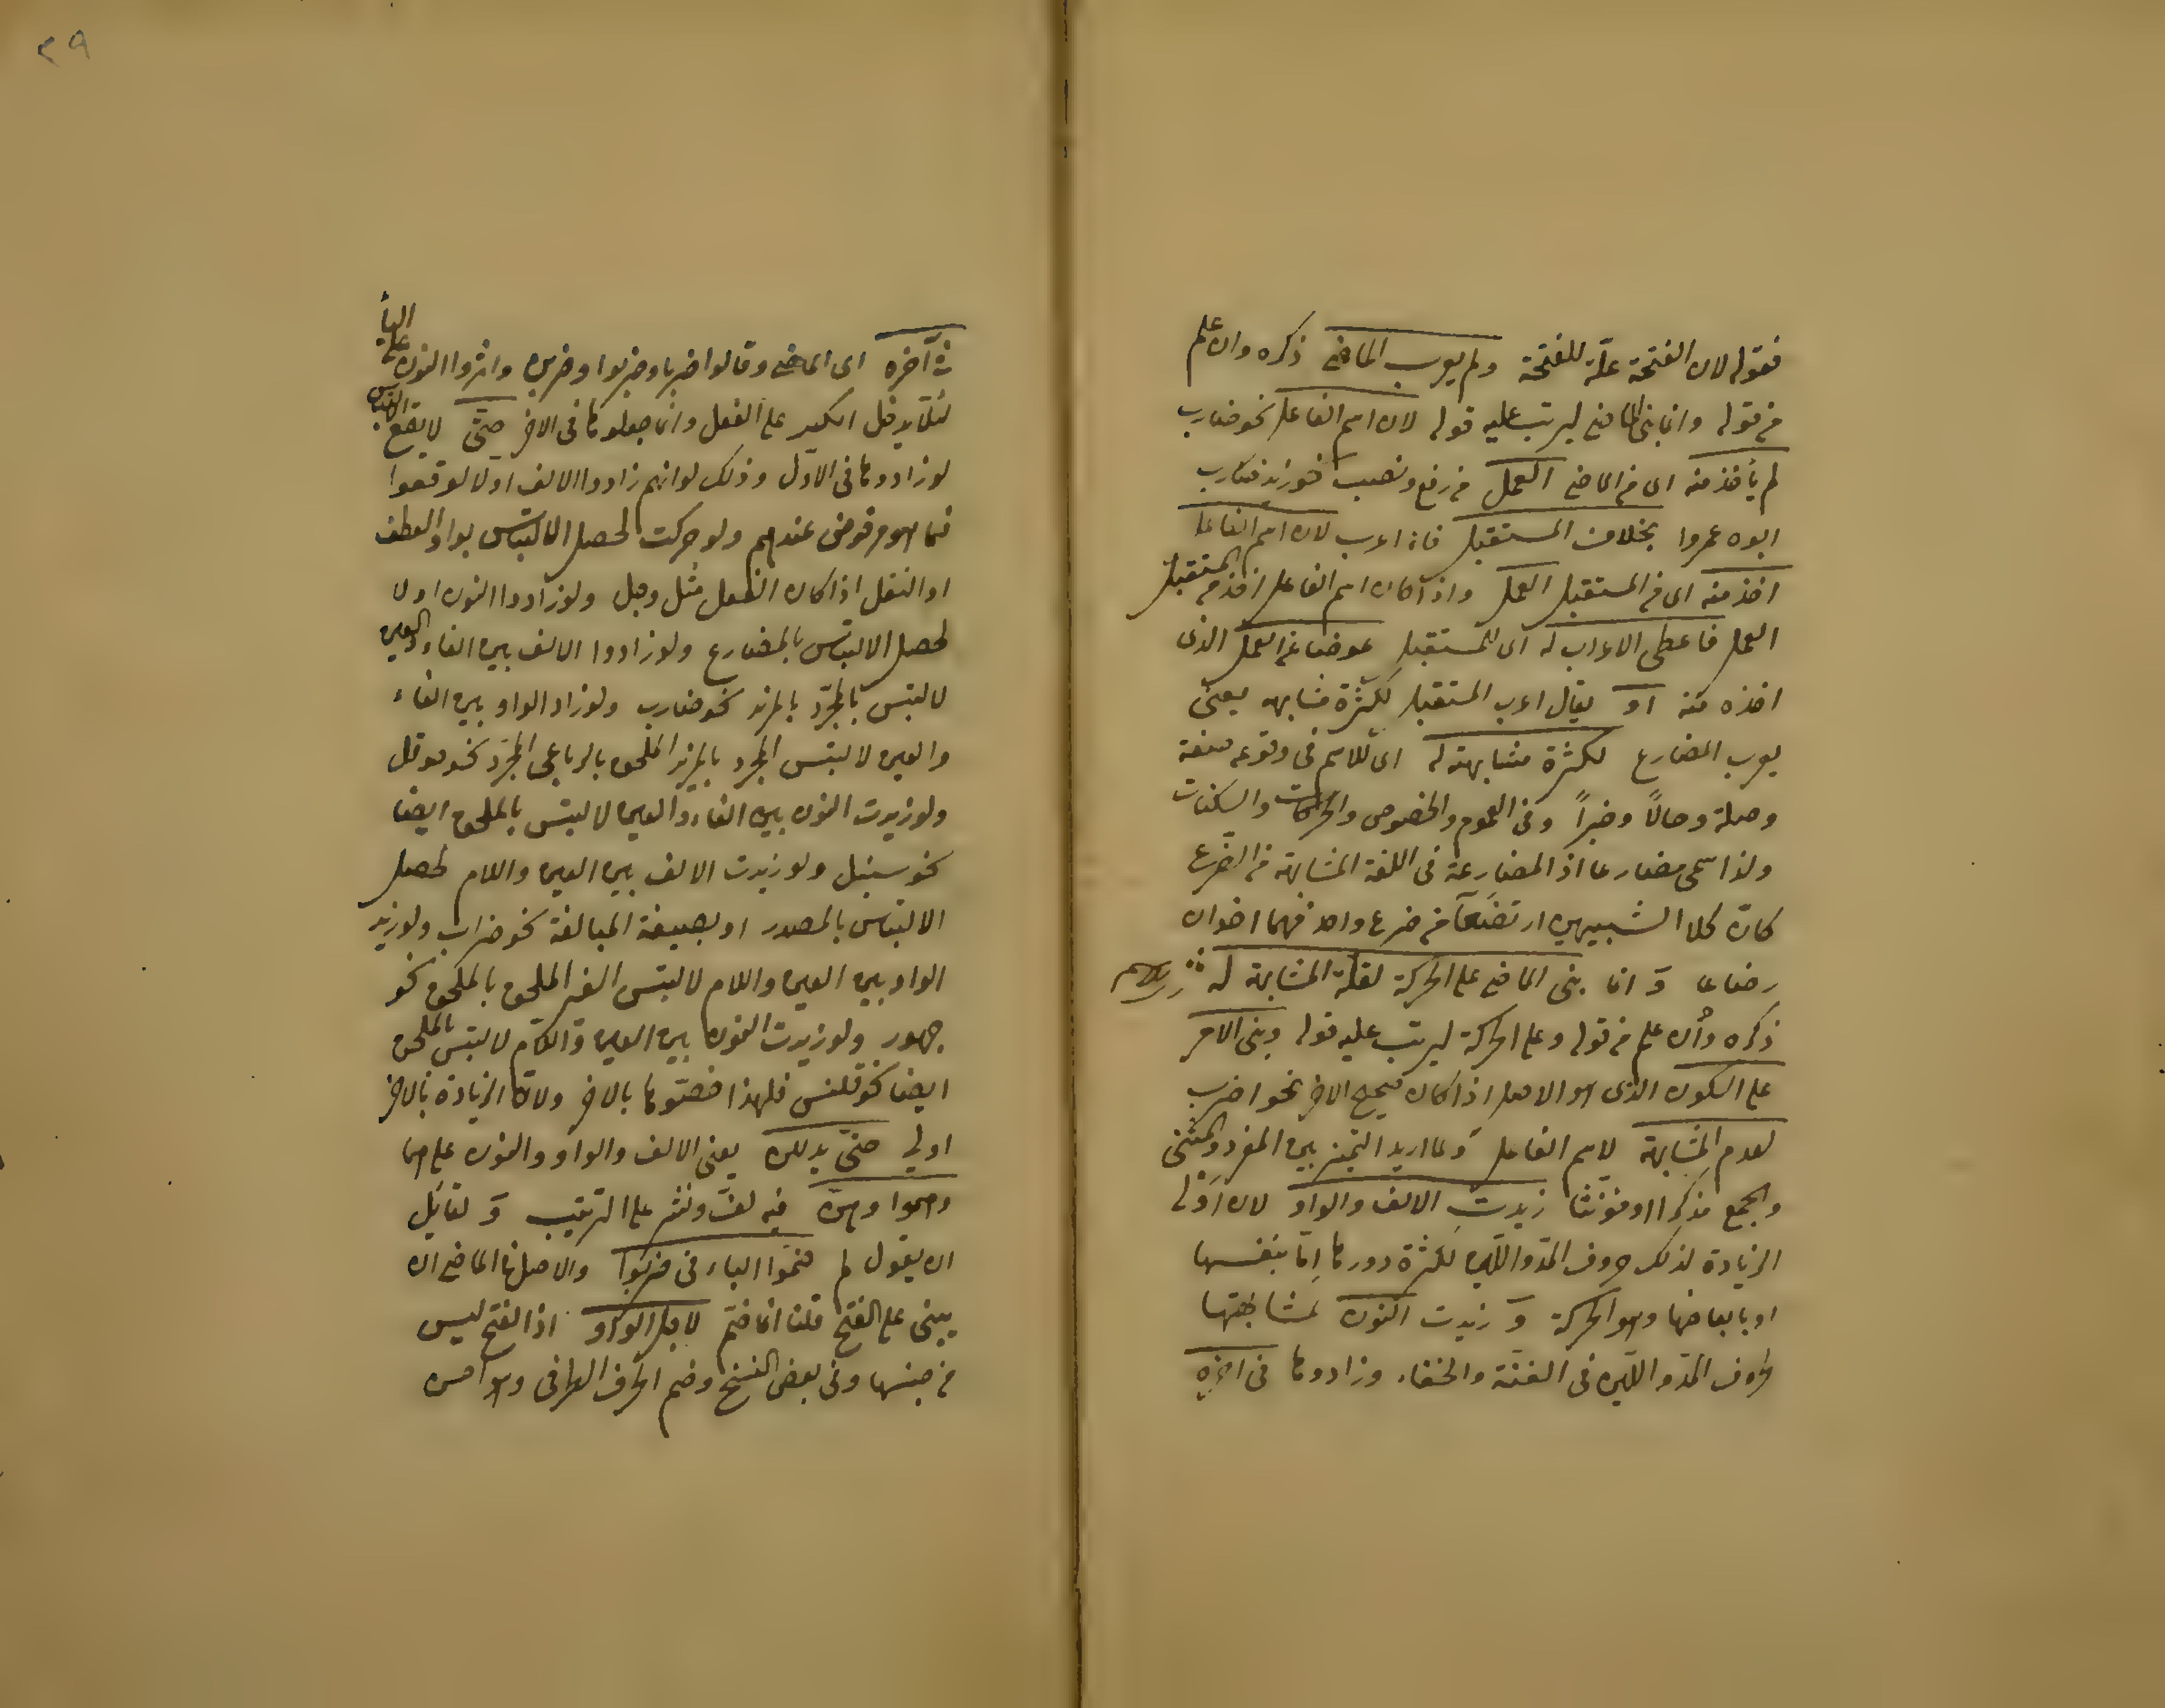 فقوله لان الفتحة علة للفتحة ولم يعرب الماضي ذكره وان علم
من قوله وانما بنى الماضي ليرتب عليه قوله لان اسم الفاعل نحو ضارب
لم يأخذ منه اى من الماضي العمل من رفع ونصب نحو زيد ضارب
ابوه عمروا بخلاف المستقبل فانه اعرب لان اسم الفاعل
اخذ منه اى من المستقبل العمل واذا كان اسم الفاعل اخذ من المستقبل
العمل فاعطى الاعراب له اى للمستقبل عوضا عن العمل الذى
اخذه منه او يقال اعرب المستقبل لكثرة مشابهه يعنى
يعرب المضارع لكثرة مشابهته له اى للاسم فى وقوعه صفة
وصلة وحالاً وخبراً وفى العموم والخصوص والحركات والسكنات
ولذا سمى مضارعا اذ المضارعة فى اللغة المشابهة من الضرع
كانّ كلا الشبيهين ارتضعا من ضرع واحد فهما اخوان
رضاعا وَ انما بنى الماضي على الحركة لقلة المشابهة له
ذكره وأن علم من قوله وعلى الحركة ليرتب عليه قوله وبنى الامر
على السكون الذى هو الاصل اذا كان صحيح الاخر نحو اضرب
لعدم المشابهة لاسم الفاعل وَ لما اريد التميز بين المفرد والمثنى
والجمع مذكرا او مؤنّثا زيدت الالف والواو لان اَوْلى
الزيادة لذلك حروف المدّ واللين لكثرة دورها اِمّا بنفسها
او بابعاضها وهو الحركة وَ زيدت النون لمشابهتها
حروف المدّ واللين فى الغنّة والخفاء وزادوها فى اخره
٢٩
فى آخره اى الماضي وقالوا ضربا وضربوا وضربن واثروا النون على اليأ
لئلّا يدخل الكسر على الفعل وانّما جعلوها فى الاخر حتّى لا يقع الالتباس
لو زادوها فى الاوّل وذلك لو انهم زادوا الالف اولا لوقعوا
فيما هو مرفوض عندهم ولو حركت لحصل الالتباس بواو العطف
او الثقل اذا كان الفعل مثل وجل ولو زادوا النون اولا
لحصل الالتباس بالمضارع ولو زادوا الالف بين الفاء والعين
لالتبس المجرّد بالمزيد نحو ضارب ولو زاد الواو بين الفاء
والعين لالتبس المجرد بالمزيد الملحق بالرباعى المجرّد نحو حوقل
ولو زيدت النون بين الفاء والعين لالتبس بالملحق ايضا
نحو سنبل ولو زيدت الالف بين العين واللام لحصل
الالتباس بالمصدر او بصيغة المبالغة نحو ضراب ولو زيد
الواو بين العين واللام لالتبس الغير الملحق بالملحق نحو
جهور ولو زيدت النون بين العين واللام لالتبس بالملحق
ايضا نحو قلنس فلهذا خصّوها بالاخر ولانّ الزيادة بالاخر
اولى حتّى يدللن يعنى الالف والواو والنون على هما
وهموا وهنّ فيه لفّ ونشر على الترتيب وَ لقائل
ان يقول لم ضمّوا الباء فى ضربوا والاصل فى الماضي ان
يبنى على الفتح قلنا انما ضمّ لاجل الواو اذ الفتح ليس
من جنسها وفى بعض النسخ وضم الحرف الطرافى وهو احسن